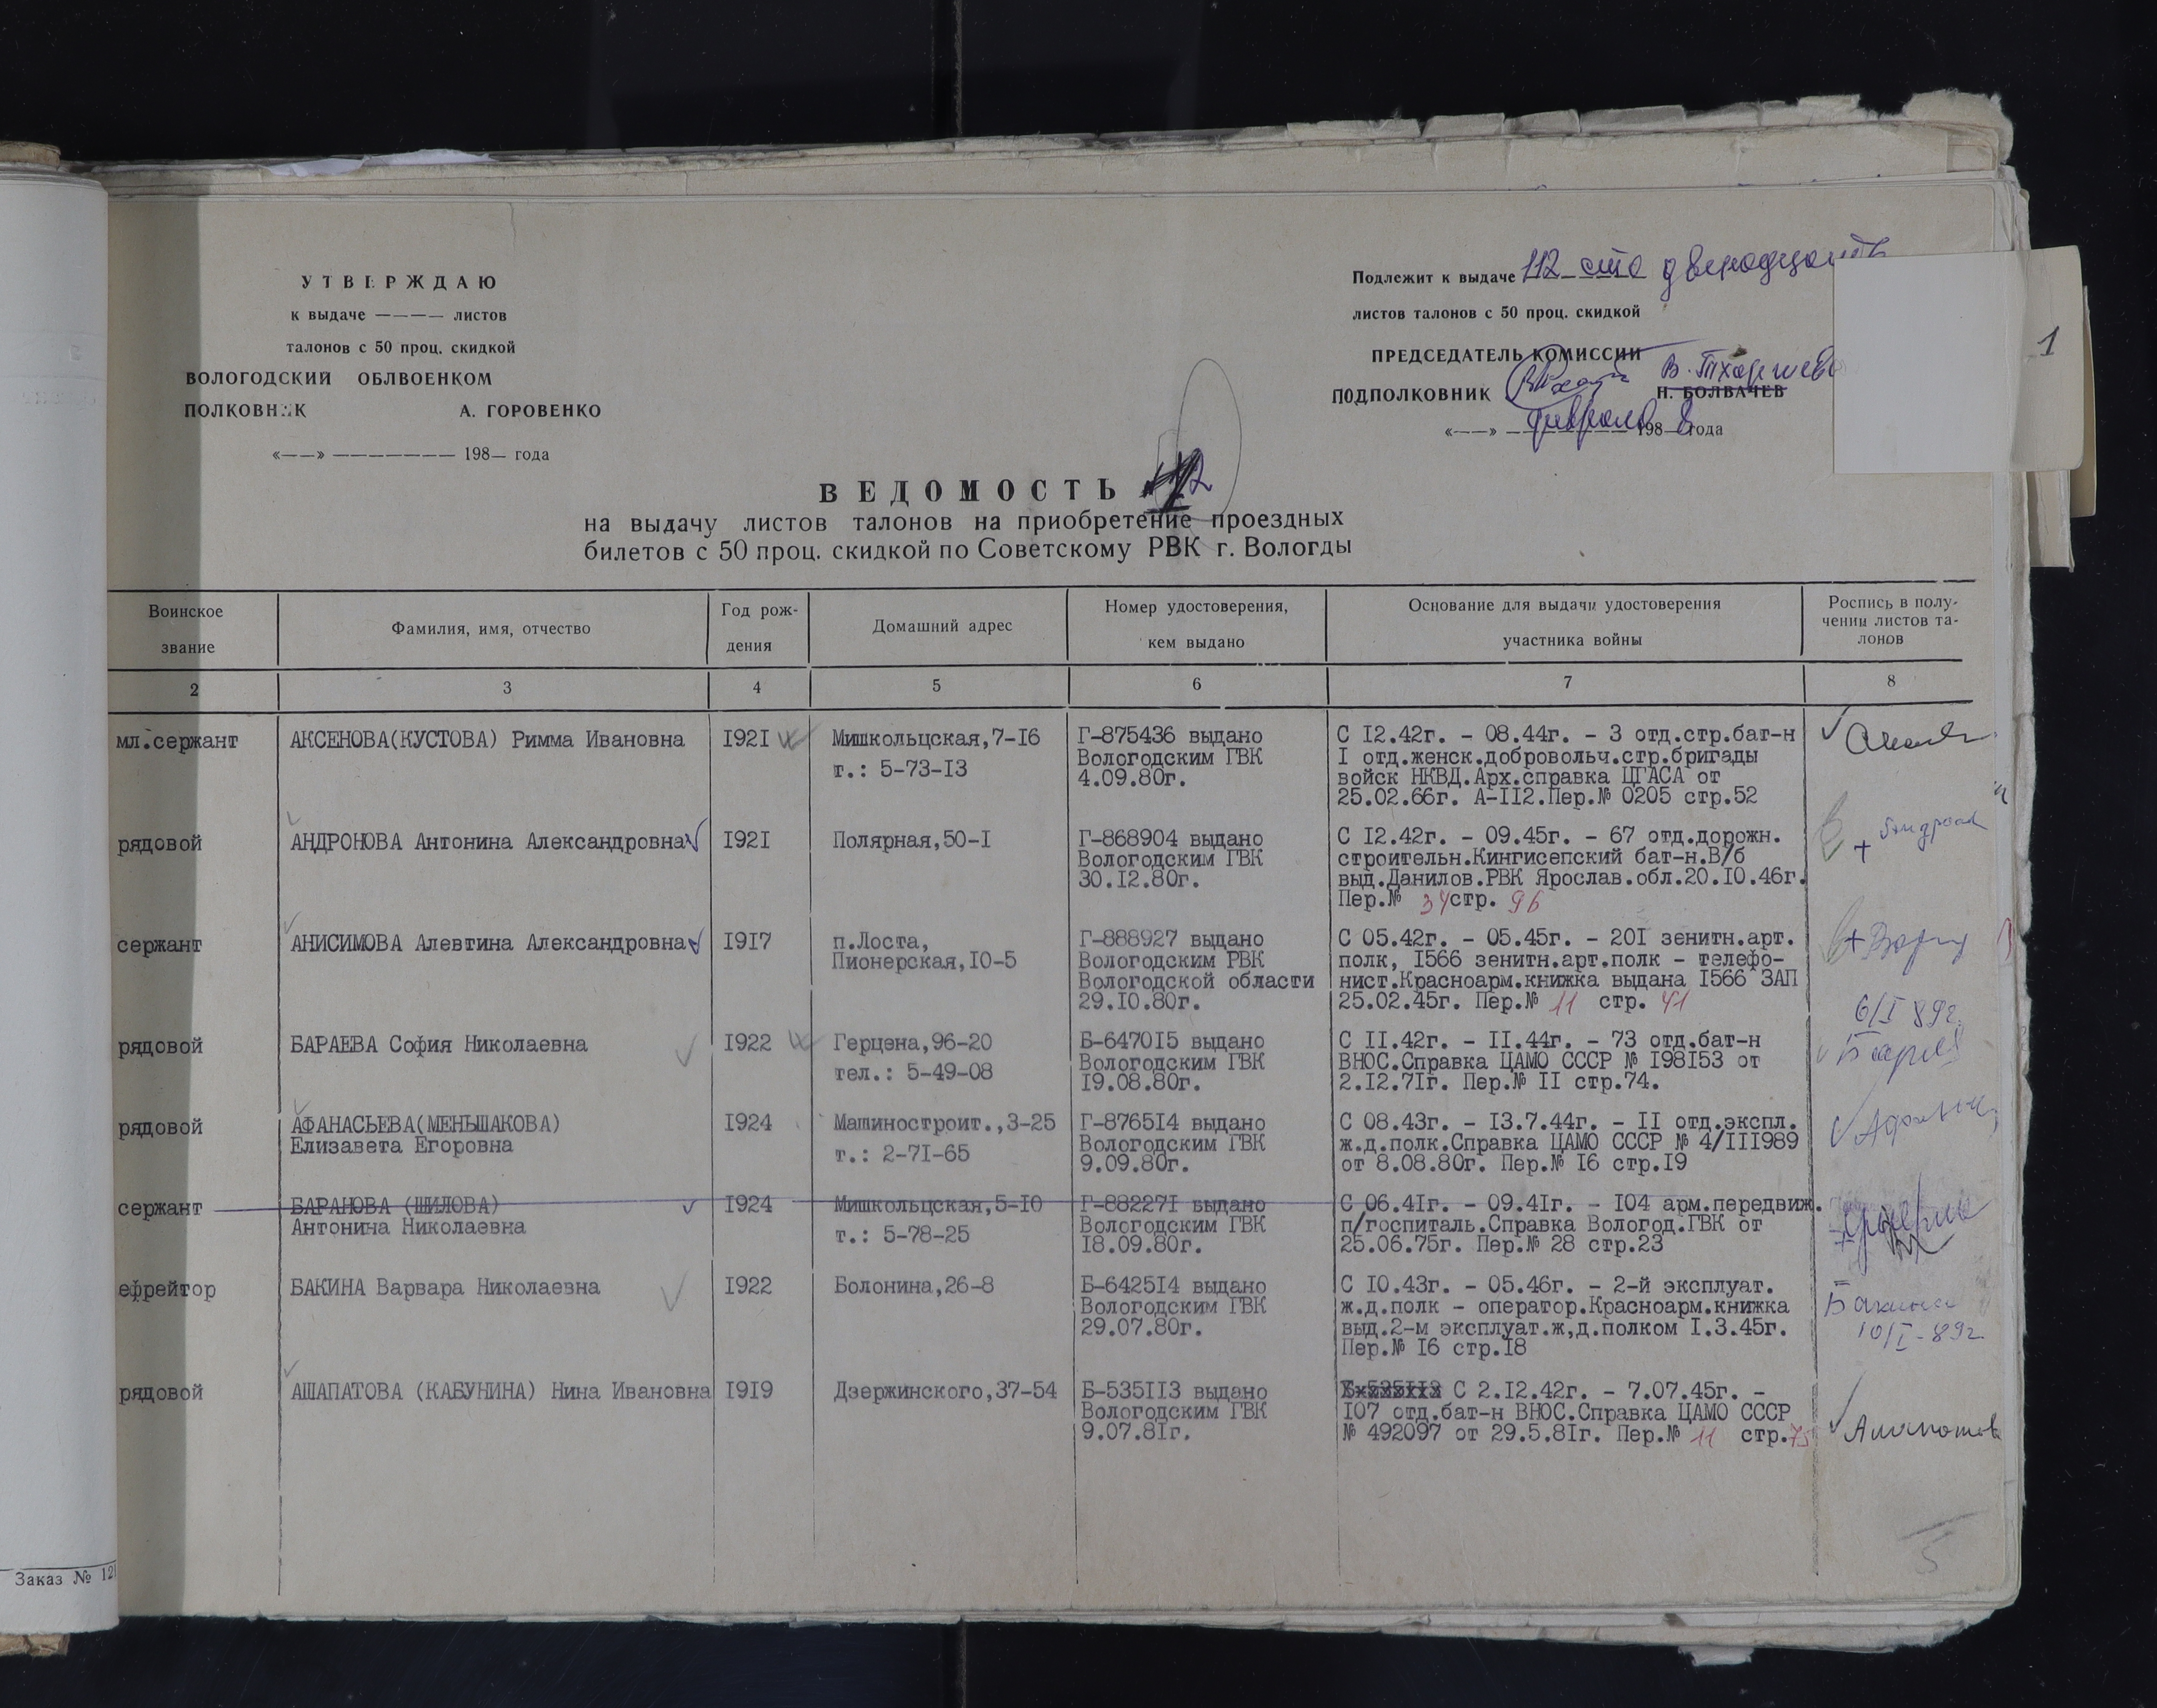 УТВЕРЖДАЮ
к выдаче ———— листов
талонов с 50 проц. скидкой
ВОЛОГОДСКИЙ ОБЛВОЕНКОМ
ПОЛКОВНИК А. ГОРОВЕНКО
«——» ——————— 198— года
Подлежит к выдаче 112 сто двенадцать
листов талонов с 50 проц. скидкой
ПРЕДСЕДАТЕЛЬ КОМИССИИ
ПОДПОЛКОВНИК Н. БОЛВАЧЕВ
«——» февраля 198 8 года
1
ВЕДОМОСТЬ
на выдачу листов талонов на приобретение проездных
билетов с 50 проц. скидкой по Советскому РВК г. Вологды
Воинское звание
Фамилия, имя, отчество
Год рож-
дения
Домашний адрес
Номер удостоверения,
кем выдано
Основание для выдачи удостоверения
участника войны
Роспись в полу-
чении листов та-
лонов
2 3 4 5 6 7 8
мл.сержант
АКСЕНОВА(КУСТОВА) Римма Ивановна
I92I
Мишкольцская,7-I6
т.: 5-73-I3
Г-875436 выдано
Вологодским ГВК
4.09.80г.
С I2.42г. - 08.44г. - 3 отд.стр.бат-н
I отд.женск.добровольч.стр.бригады
войск НКВД.Арх.справка ЦГАСА от
25.02.66г. А-II2.Пер.№ 0205 стр.52
рядовой
АНДРОНОВА Антонина Александровна
I92I
Полярная,50-I
Г-868904 выдано
Вологодским ГВК
30.I2.80г.
С I2.42г. - 09.45г. - 67 отд.дорожн.
строительн.Кингисепский бат-н.В/б
выд.Данилов.РВК Ярослав.обл.20.I0.46г.
Пер.№ 34 стр. 96
сержант
АНИСИМОВА Алевтина Александровна
I9I7
п.Лоста,
Пионерская,I0-5
Г-888927 выдано
Вологодским РВК
Вологодской области
29.I0.80г.
С 05.42г. - 05.45г. - 20I зенитн.арт.
полк, I566 зенитн.арт.полк - телефо-
нист.Красноарм.книжка выдана I566 ЗАП
25.02.45г. Пер.№ 11 стр. 41
рядовой
БАРАЕВА София Николаевна
I922
Герцена,96-20
тел.: 5-49-08
Б-6470I5 выдано
Вологодским ГВК
I9.08.80г.
С II.42г. - II.44г. - 73 отд.бат-н
ВНОС.Справка ЦАМО СССР № I98I53 от
2.I2.7Iг. Пер.№ II стр.74.
6/I 89г.
рядовой
АФАНАСЬЕВА(МЕНЬШАКОВА)
Елизавета Егоровна
I924
Машиностроит.,3-25
т.: 2-7I-65
Г-8765I4 выдано
Вологодским ГВК
9.09.80г.
С 08.43г. - I3.7.44г. - II отд.экспл.
ж.д.полк.Справка ЦАМО СССР № 4/III989
от 8.08.80г. Пер.№ I6 стр.I9
сержант
БАРАНОВА (ШИЛОВА)
Антонина Николаевна
I924
Мишкольцская,5-I0
т.: 5-78-25
Г-88227I выдано
Вологодским ГВК
I8.09.80г.
С 06.4Iг. - 09.4Iг. - I04 арм.передвиж.
п/госпиталь.Справка Вологод.ГВК от
25.06.75г. Пер.№ 28 стр.23
ефрейтор
БАКИНА Варвара Николаевна
I922
Болонина,26-8
Б-6425I4 выдано
Вологодским ГВК
29.07.80г.
С I0.43г. - 05.46г. - 2-й эксплуат.
ж.д.полк - оператор.Красноарм.книжка
выд.2-м эксплуат.ж,д.полком I.3.45г.
Пер.№ I6 стр.I8
Бакина
10/I-89г.
рядовой
АШАПАТОВА (КАБУНИНА) Нина Ивановна
I9I9
Дзержинского,37-54
Б-535II3 выдано
Вологодским ГВК
9.07.8Iг.
С 2.I2.42г. - 7.07.45г. -
I07 отд.бат-н ВНОС.Справка ЦАМО СССР
№ 492097 от 29.5.8Iг. Пер.№ 11 стр.75
5
Заказ № 12